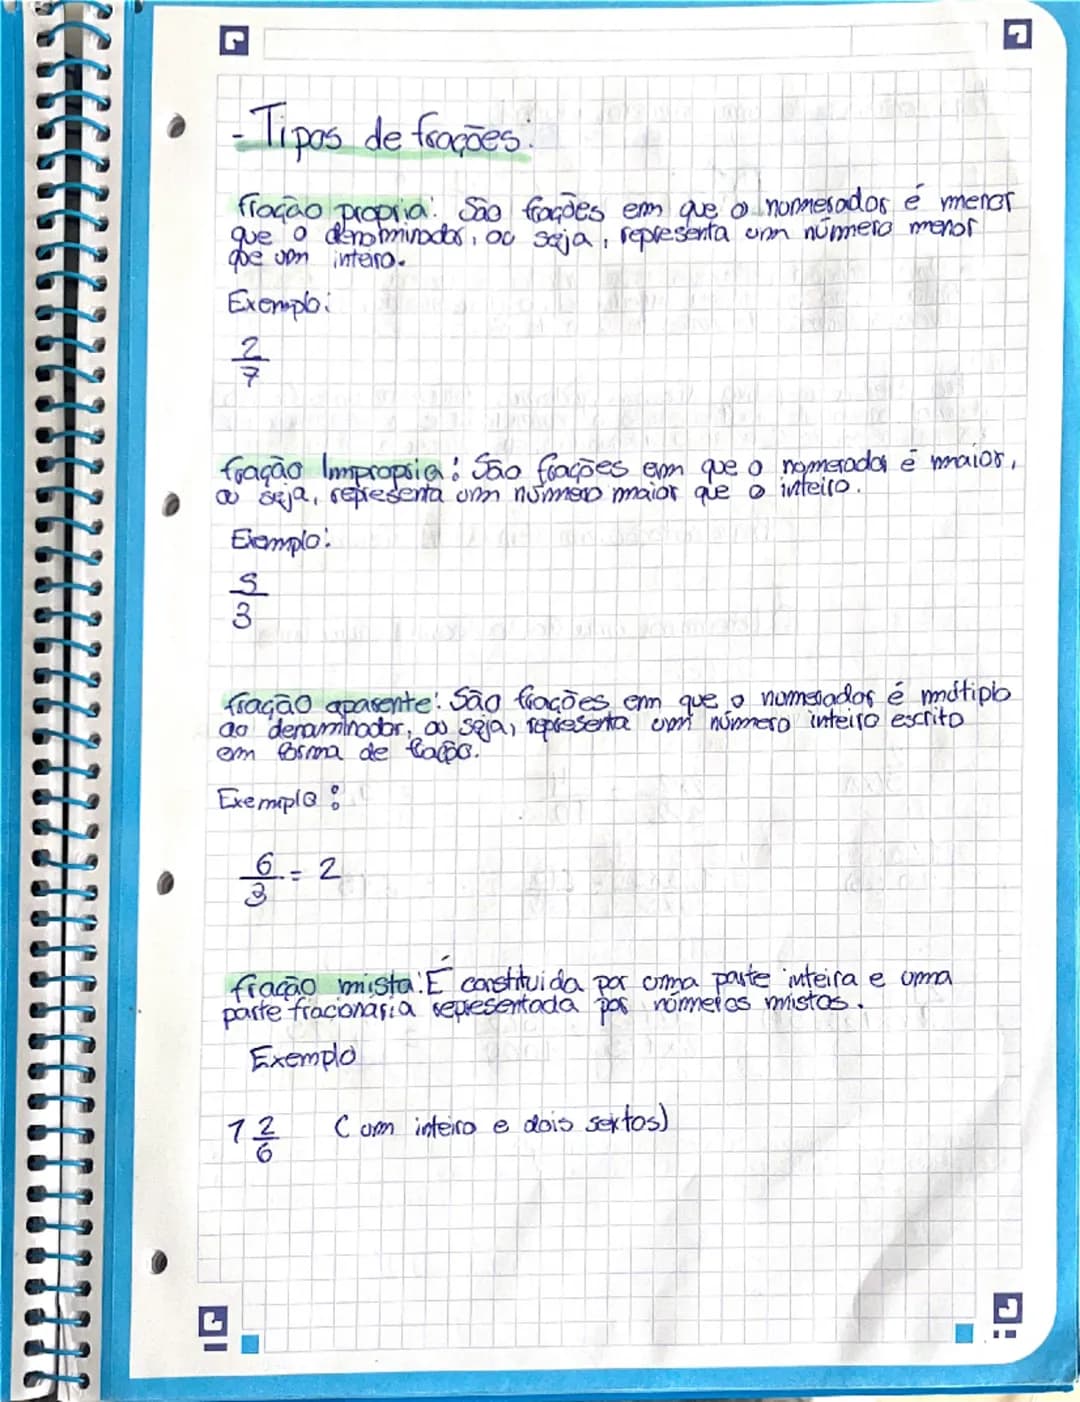 - Tipos de frações:
fração propria: São frações em que o numerador é menor
que o denominador, ou seja, representa um número menor
que um inteiro.
Exemplo:
2
7
fração Impropria: São frações em que o numerador é maior,
ou seja, representa um número maior que o inteiro.
Exemplo:
5
3
fração aparente: São frações em que o numerador é múltiplo
ao denominador, ou seja, representa um número inteiro escrito
em forma de fação.
Exemplo:
6
3 = 2
fração mista: É constituida por uma parte inteira e uma
parte fracionaria representada por números mistos.
Exemplo
1 2
6 (um inteiro e dois sextos)